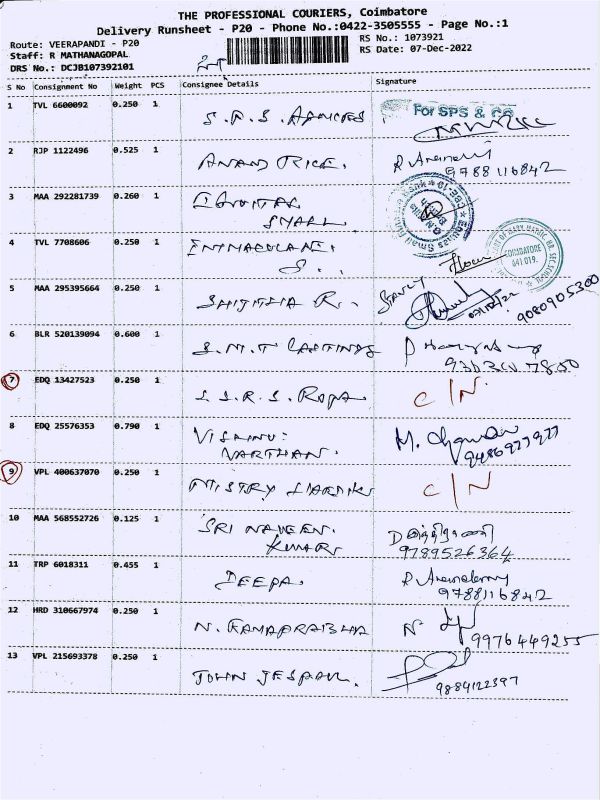 THE PROFESSIONAL COURIERS, Coimbatore
Delivery Runsheet - P20 - Phone No.:0422-3505555 - Page No.:1
Route: VEERAPANDI - P20
RS No.: 1073921
Staff: R MATHANAGOPAL
RS Date: 07-Dec-2022
DRS No.: DCJB107392101
S No Consignment No Weight PCS Consignee Details Signature
1 TVL 6600092 0.250 1 For SPS & CO
2 RJP 1122496 0.525 1 ANAND RICE.
9788116842
3 MAA 292281739 0.260 1
SMALL
4 TVL 7708606 0.250 1
COIMBATORE
641 019.
5 MAA 295395664 0.250 1 SHIJITHA R.
9080905300
6 BLR 520139094 0.600 1 S.M.T CASTINGS
7 EDQ 13427523 0.250 1 S.S.R.S. ROPA C/N.
8 EDQ 25576353 0.790 1 VISHNU
VARTHAN.
9486977977
9 VPL 400637070 0.250 1 MISTRY C/N
10 MAA 568552726 0.125 1 SRI NAVEEN.
KUMAR
9789526364
11 TRP 6018311 0.455 1 DEEPA.
9788116842
12 HRD 310667974 0.250 1 N. RAMAPRABHA N
9976449255
13 VPL 215693378 0.250 1 JOHN JESPAUL.
9884122397